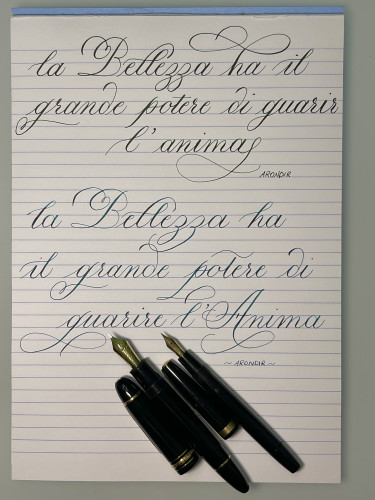 la Bellezza ha il
grande potere di guarir
l'anima
ARONDIR
la Bellezza ha
il grande potere di
guarire l'Anima
~ ARONDIR ~